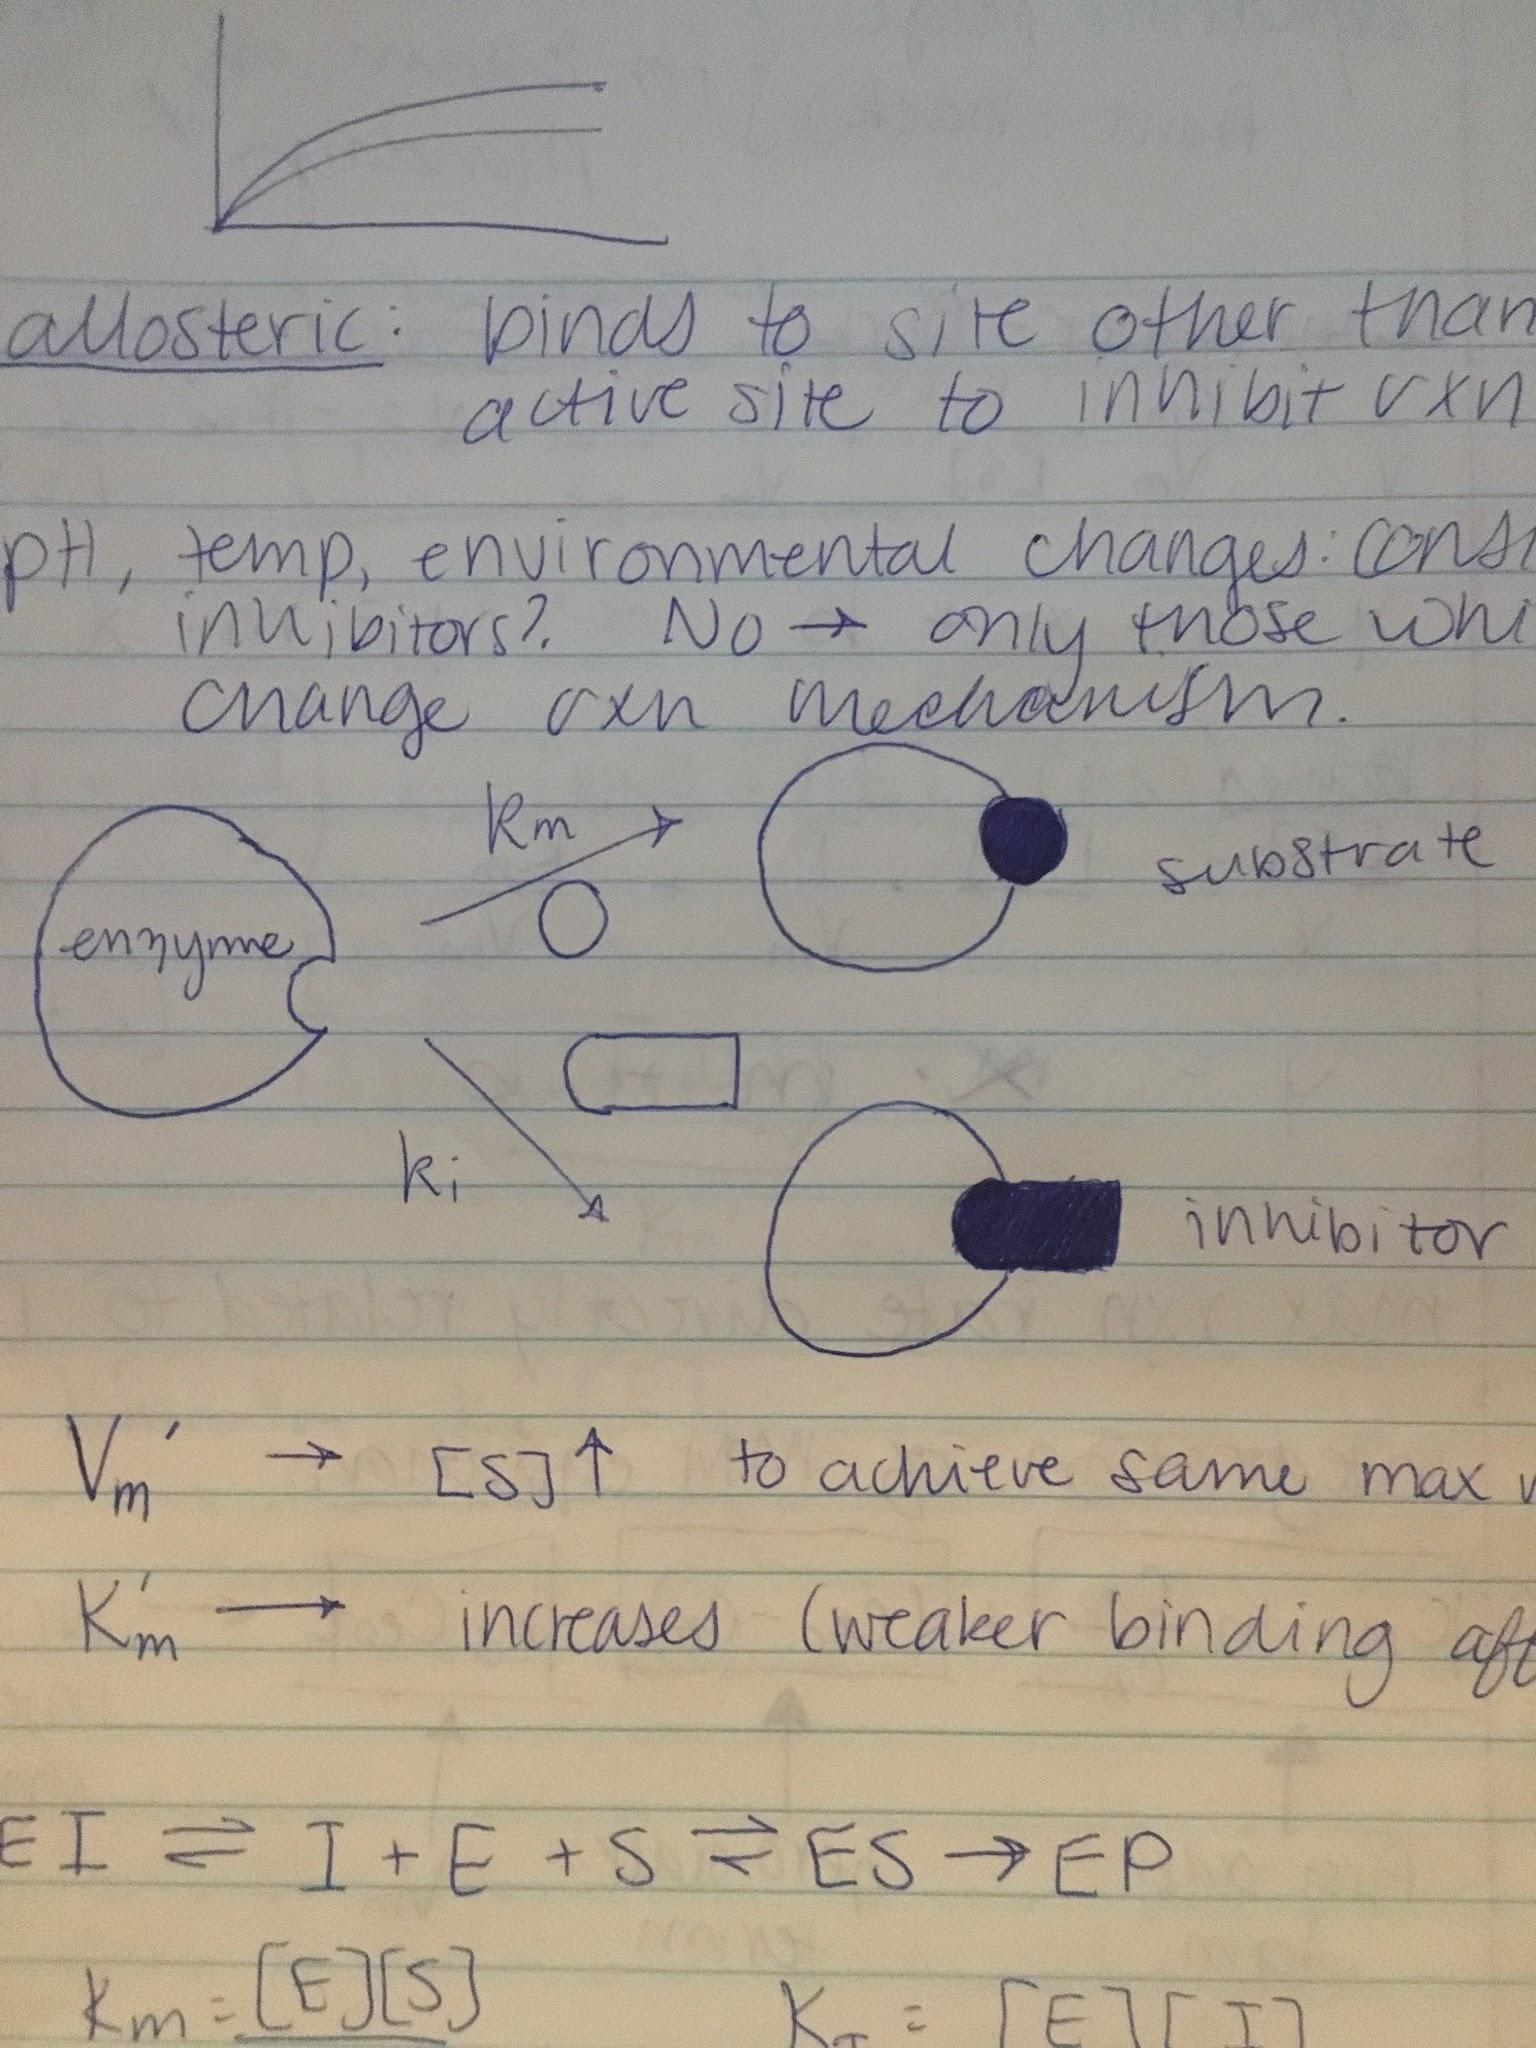 allosteric: binds to site other than
active site to inhibit rxn
pH, temp, environmental changes:
inhibitors? No → only those
change rxn mechanism.
Km
substrate
enzyme
Ki
inhibitor
Vm′ → [S]↑ to achieve same max
K′m → increases (weaker binding
EI ⇌ I + E + S ⇌ ES → EP
Km = [E][S]
KI = [E][I]